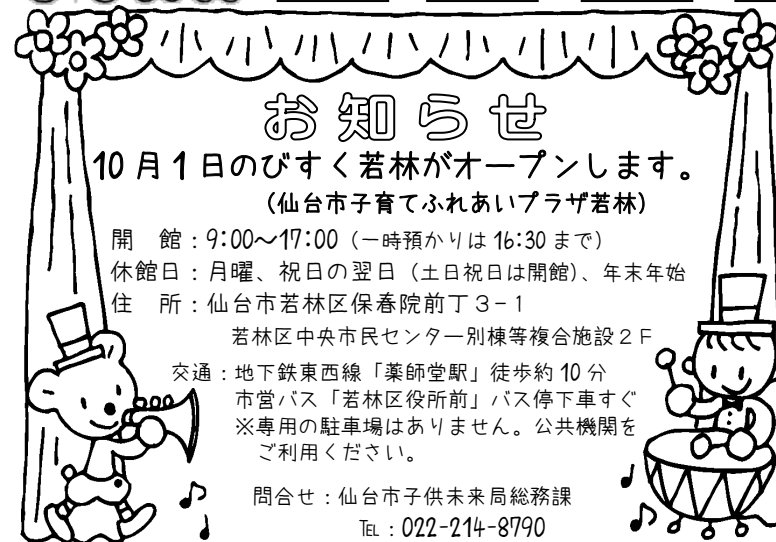 お知らせ
10月1日のびすく若林がオープンします。
(仙台市子育てふれあいプラザ若林)
開　館：9:00～17:00（一時預かりは16:30まで）
休館日：月曜、祝日の翌日（土日祝日は開館）、年末年始
住　所：仙台市若林区保春院前丁３−１
若林区中央市民センター別棟等複合施設２Ｆ
交通：地下鉄東西線「薬師堂駅」徒歩約10分
市営バス「若林区役所前」バス停下車すぐ
※専用の駐車場はありません。公共機関を
ご利用ください。
問合せ：仙台市子供未来局総務課
℡：022-214-8790